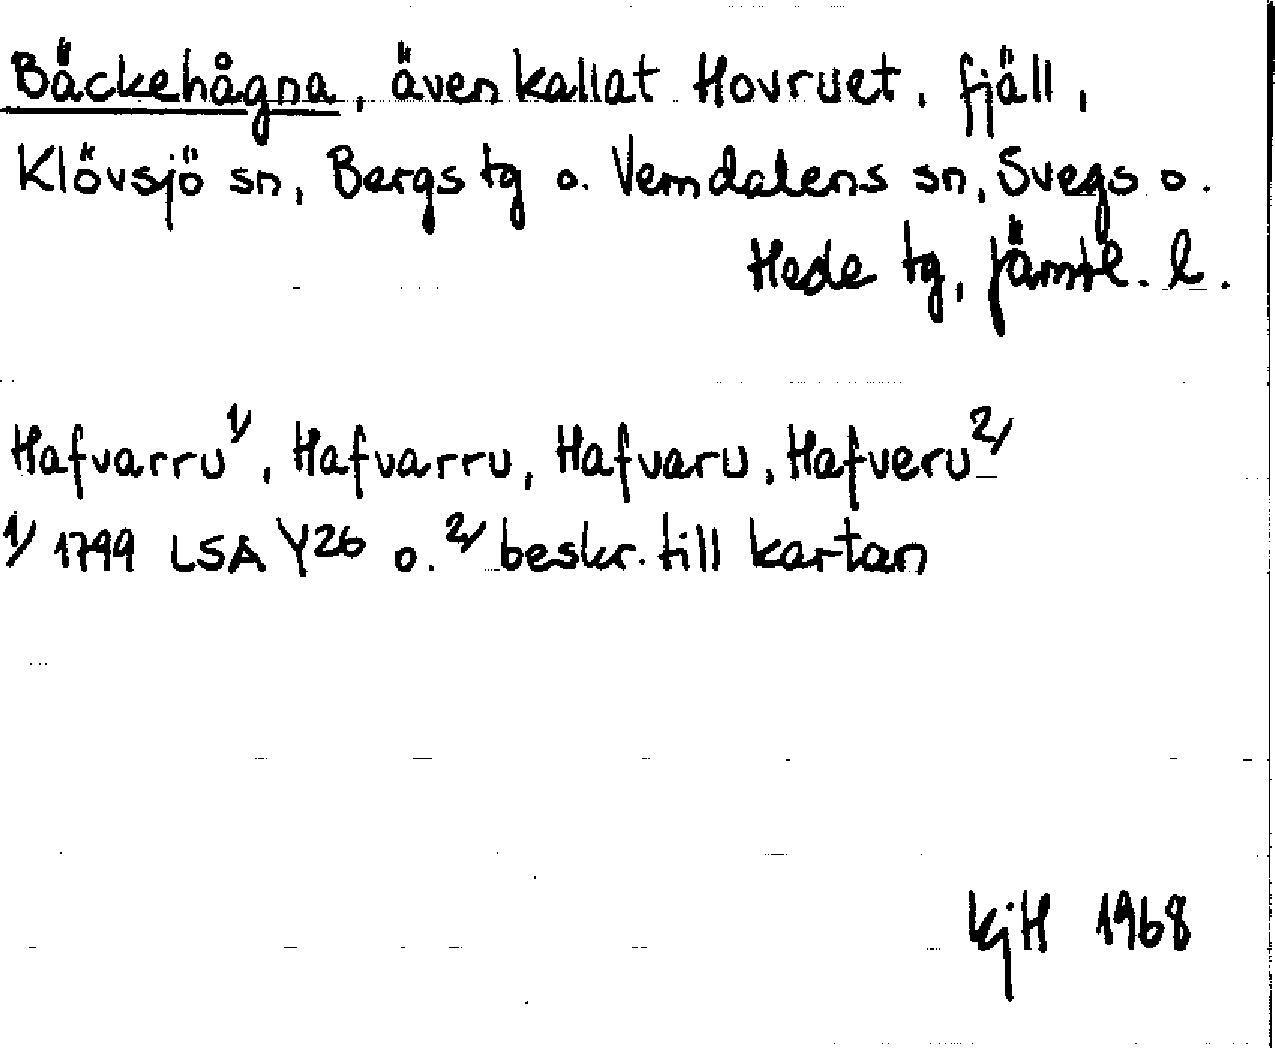 Bäckehågna, även kallat Hovruet, fjäll,
Klövsjö sn, Bergs tg o. Vemdalens sn, Svegs o.
Hede tg, Jämtl. l.
Hafvarru 1/, Hafvarru, Hafvaru, Hafveru 2/
1/ 1799 LSA Y26 o. 2/ beskr. till kartan
KjH 1968